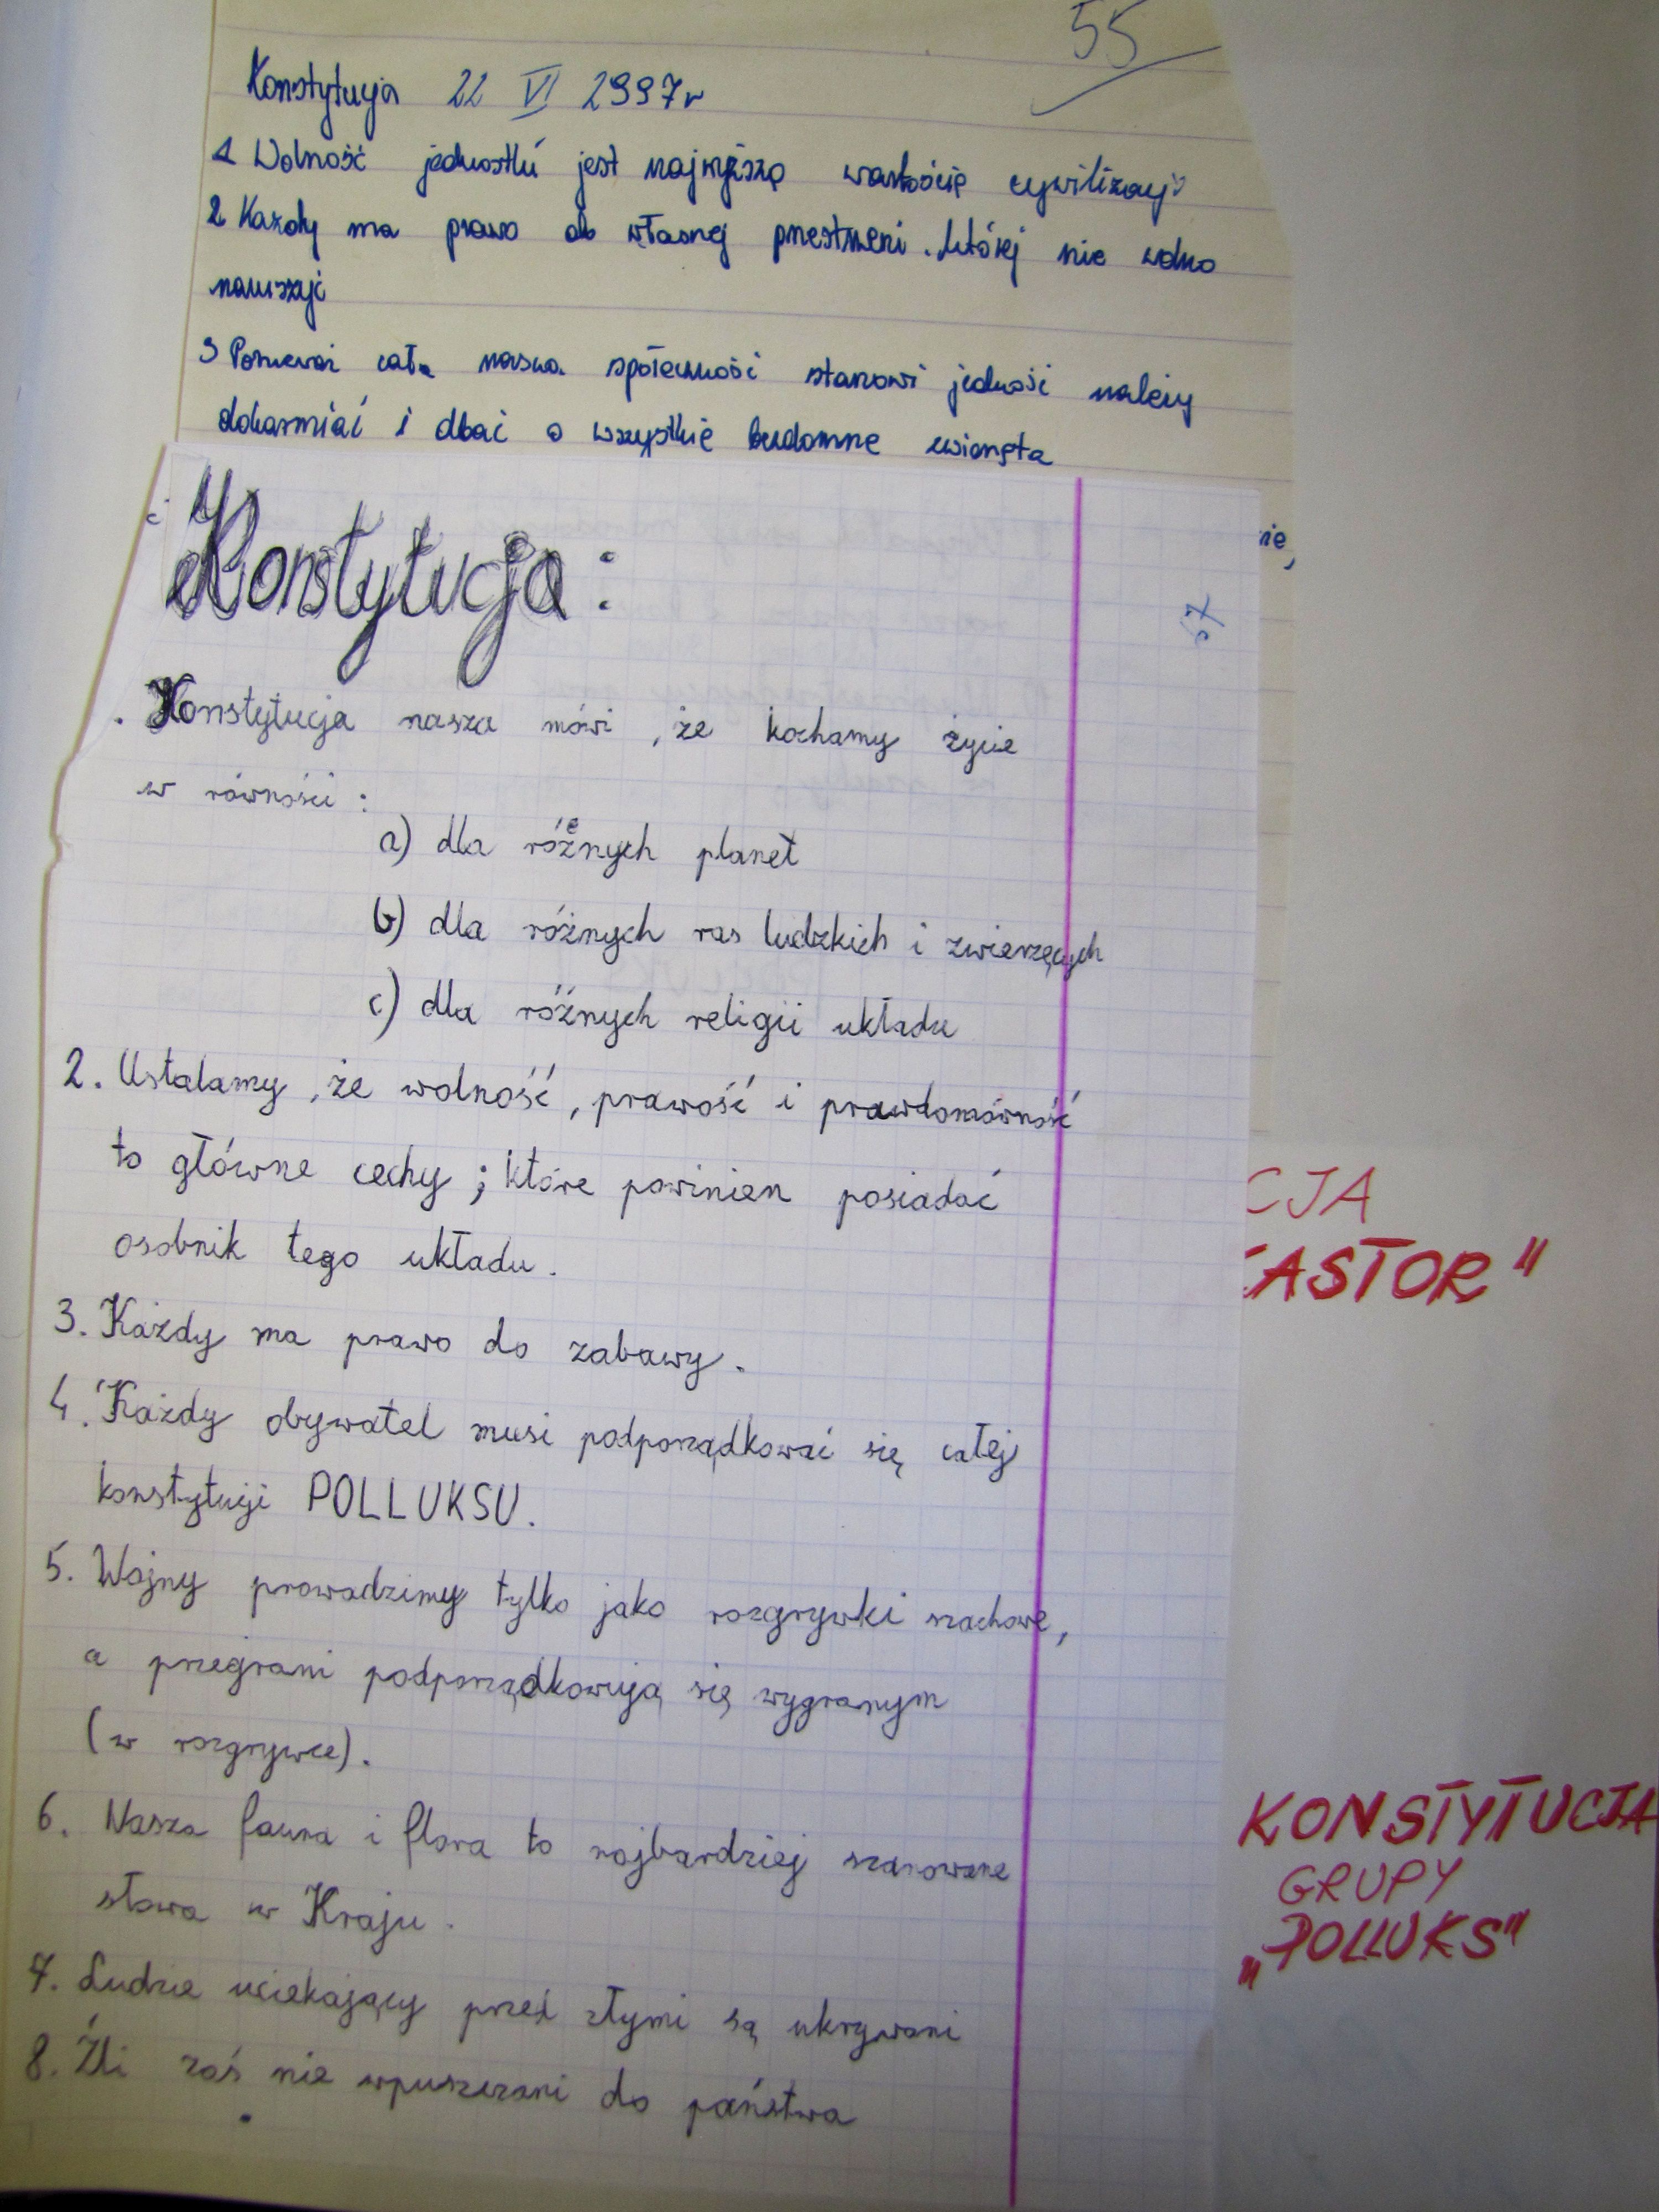 55
Konstytucja 22 VI 2997r
1 Wolność jednostki jest najwyższą wartością cywilizacji
2 Każdy ma prawo do własnej przestrzeni. której nie wolno
naruszyć
3 Ponieważ cała nasza społeczność stanowi jedność należy
dokarmiać i dbać o wszystkie bezdomne zwierzęta
nie,
57
Konstytucja:
. Konstytucja nasza mówi, że kochamy życie
w równości:
a) dla różnych planet
b) dla różnych ras ludzkich i zwierzęcych
c) dla różnych religii układu
2. Ustalamy, że wolność, prawość i prawdomówność
to główne cechy; które powinien posiadać
osobnik tego układu.
3. Każdy ma prawo do zabawy.
4. Każdy obywatel musi podporządkować się całej
konstytucji POLLUKSU.
5. Wojny prowadzimy tylko jako rozgrywki szachowe,
a przegrani podporządkowują się wygranym
(w rozgrywce).
6. Nasza fauna i flora to najbardziej szanowane
słowa w Kraju.
7. Ludzie uciekający przed złymi są ukrywani
8. Źli zaś nie wpuszczani do państwa
CJA
KASTOR"
KONSTYTUCJA
GRUPY
„POLLUKS"